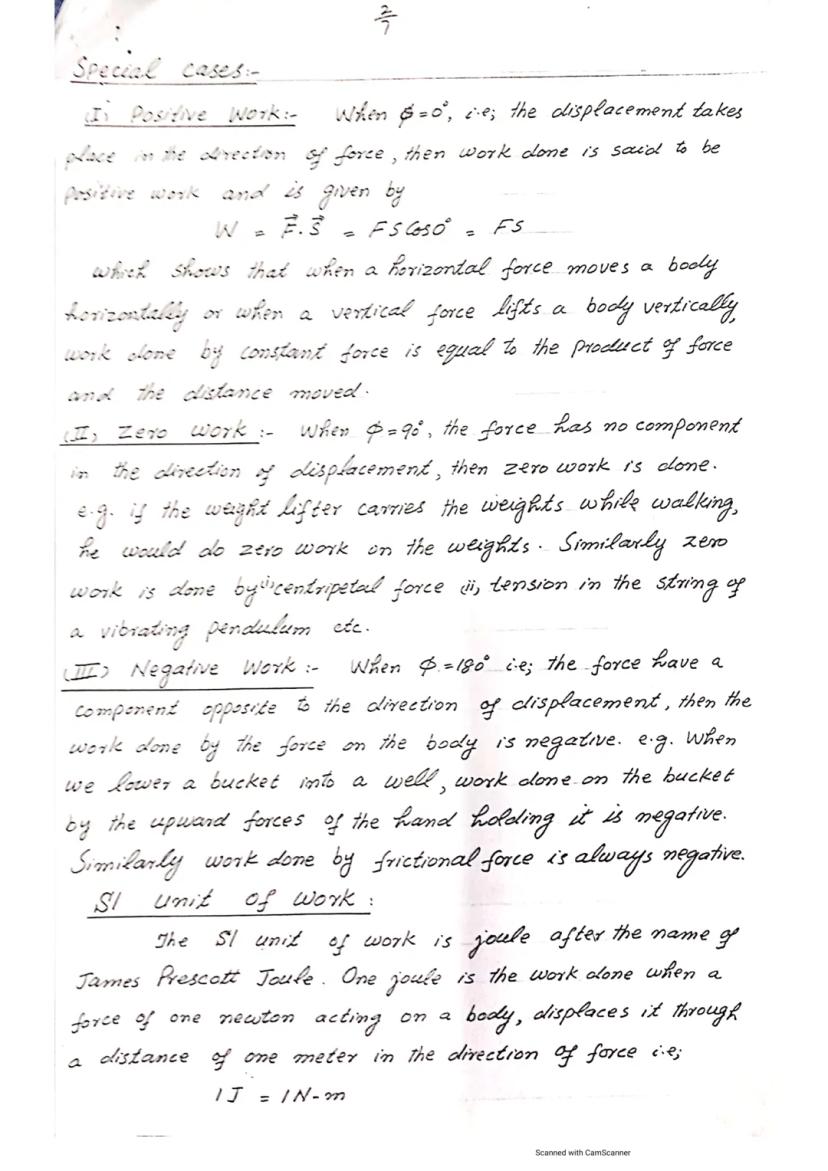 2/7
Special cases:-
(I) Positive Work:- When ϕ=0°, i.e; the displacement takes
place in the direction of force, then work done is said to be
positive work and is given by
W = F⃗.S⃗ = FSCos0° = FS
which shows that when a horizontal force moves a body
horizontally or when a vertical force lifts a body vertically,
work done by constant force is equal to the product of force
and the distance moved.
(II) Zero Work :- When ϕ=90°, the force has no component
in the direction of displacement, then zero work is done.
e.g. if the weight lifter carries the weights while walking,
he would do zero work on the weights. Similarly zero
work is done by (i) centripetal force (ii) tension in the string of
a vibrating pendulum etc.
(III) Negative Work :- When ϕ=180° i.e; the force have a
component opposite to the direction of displacement, then the
work done by the force on the body is negative. e.g. When
we lower a bucket into a well, work done on the bucket
by the upward forces of the hand holding it is negative.
Similarly work done by frictional force is always negative.
SI unit of work :
The SI unit of work is joule after the name of
James Prescott Joule. One joule is the work done when a
force of one newton acting on a body, displaces it through
a distance of one meter in the direction of force i.e;
1J = 1N-m
Scanned with CamScanner